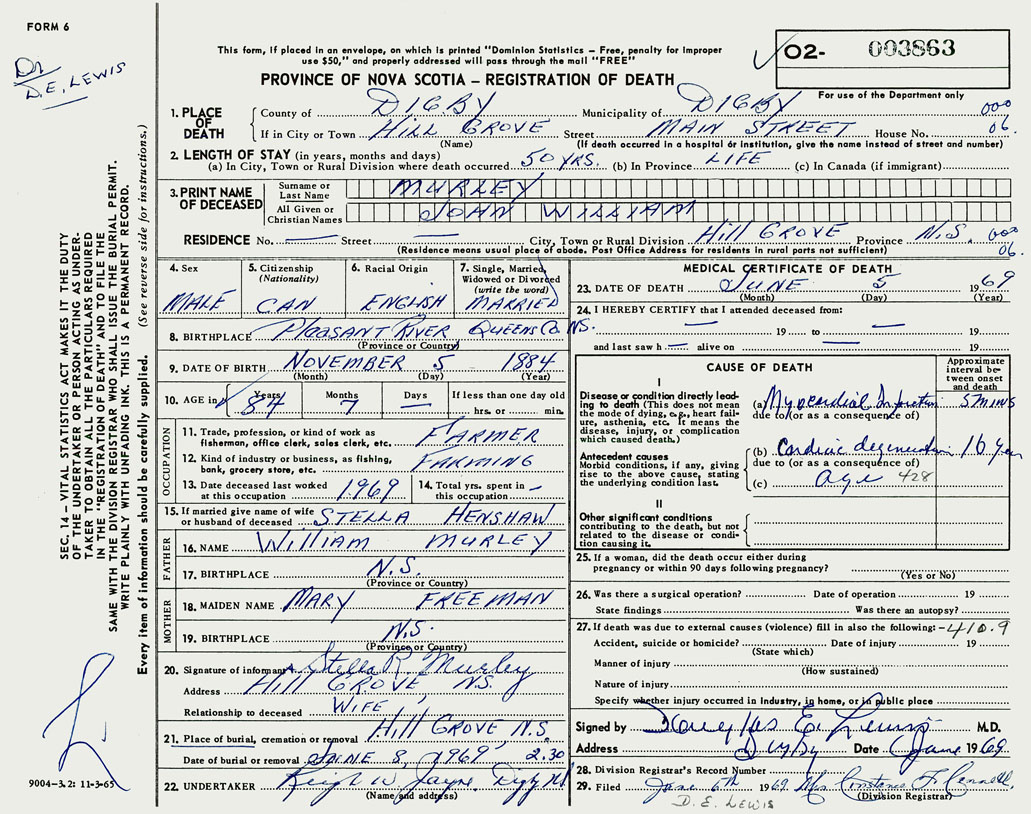 FORM 6
Dr
D.E. LEWIS
This form, if placed in an envelope, on which is printed "Dominion Statistics – Free, penalty for improper
use $50," and properly addressed will pass through the mail "FREE"
PROVINCE OF NOVA SCOTIA – REGISTRATION OF DEATH
O2- 003863
For use of the Department only
1. PLACE OF DEATH
County of DIGBY Municipality of DIGBY 000
If in City or Town HILL GROVE Street MAIN STREET House No. 06.
(Name) (If death occurred in a hospital or institution, give the name instead of street and number)
2. LENGTH OF STAY (in years, months and days)
(a) In City, Town or Rural Division where death occurred 50 YRS. (b) In Province LIFE (c) In Canada (if immigrant)
3. PRINT NAME OF DECEASED
Surname or Last Name MURLEY
All Given or Christian Names JOHN WILLIAM
RESIDENCE No. — Street — City, Town or Rural Division Hill GROVE Province N.S. 000
(Residence means usual place of abode. Post Office Address for residents in rural parts not sufficient) 06.
4. Sex MALE
5. Citizenship (Nationality) CAN
6. Racial Origin ENGLISH
7. Single, Married, Widowed or Divorced (write the word) MARRIED
8. BIRTHPLACE PLEASANT RIVER QUEENS Co NS.
(Province or Country)
9. DATE OF BIRTH NOVEMBER 5 1884
(Month) (Day) (Year)
10. AGE in Years 84 Months 7 Days — If less than one day old
hrs. or min.
OCCUPATION
11. Trade, profession, or kind of work as
fisherman, office clerk, sales clerk, etc. FARMER
12. Kind of industry or business, as fishing,
bank, grocery store, etc. FARMING
13. Date deceased last worked
at this occupation 1969
14. Total yrs. spent in
this occupation —
15. If married give name of wife
or husband of deceased STELLA HENSHAW
FATHER
16. NAME WILLIAM MURLEY
17. BIRTHPLACE N.S.
(Province or Country)
MOTHER
18. MAIDEN NAME MARY FREEMAN
19. BIRTHPLACE N.S.
(Province or Country)
20. Signature of informant Stella R. Murley
Address HILL GROVE N.S.
Relationship to deceased WIFE
21. Place of burial, cremation or removal Hill GROVE N.S.
Date of burial or removal JUNE 8, 1969, 2.30
22. UNDERTAKER W. Jayne Digby
(Name and address)
MEDICAL CERTIFICATE OF DEATH
23. DATE OF DEATH JUNE 5 1969
(Month) (Day) (Year)
24. I HEREBY CERTIFY that I attended deceased from:
— 19 to — 19
and last saw h — alive on — 19
CAUSE OF DEATH
Approximate interval be-
tween onset
and death
I
Disease or condition directly lead-
ing to death (This does not mean
the mode of dying, e.g., heart fail-
ure, asthenia, etc. It means the
disease, injury, or complication
which caused death.)
(a) Myocardial Infarction 5 MINS
due to (or as a consequence of)
Antecedent causes
Morbid conditions, if any, giving
rise to the above cause, stating
the underlying condition last.
(b) Cardiac degeneration 10 year
due to (or as a consequence of)
(c) Age 428
II
Other significant conditions
contributing to the death, but not
related to the disease or condi-
tion causing it.
25. If a woman, did the death occur either during
pregnancy or within 90 days following pregnancy?
(Yes or No)
26. Was there a surgical operation? Date of operation 19
State findings Was there an autopsy?
27. If death was due to external causes (violence) fill in also the following: -410.9
Accident, suicide or homicide? Date of injury 19
(State which)
Manner of injury
(How sustained)
Nature of injury
Specify whether injury occurred in Industry, in home, or in public place
Signed by Douglas E. Lewis M.D.
Address Digby Date June 1969
28. Division Registrar's Record Number
29. Filed June 6th 1969 Mrs Constance F.
(Division Registrar)
D. E. LEWIS
SEC. 14 – VITAL STATISTICS ACT MAKES IT THE DUTY
OF THE UNDERTAKER OR PERSON ACTING AS UNDER-
TAKER TO OBTAIN ALL THE PARTICULARS REQUIRED
IN THE "REGISTRATION OF DEATH" AND TO FILE THE
SAME WITH THE DIVISION REGISTRAR WHO SHALL ISSUE THE BURIAL PERMIT.
WRITE PLAINLY WITH UNFADING INK. THIS IS A PERMANENT RECORD.
Every item of information should be carefully supplied. (See reverse side for instructions.)
9004-3.2: 11-3-65